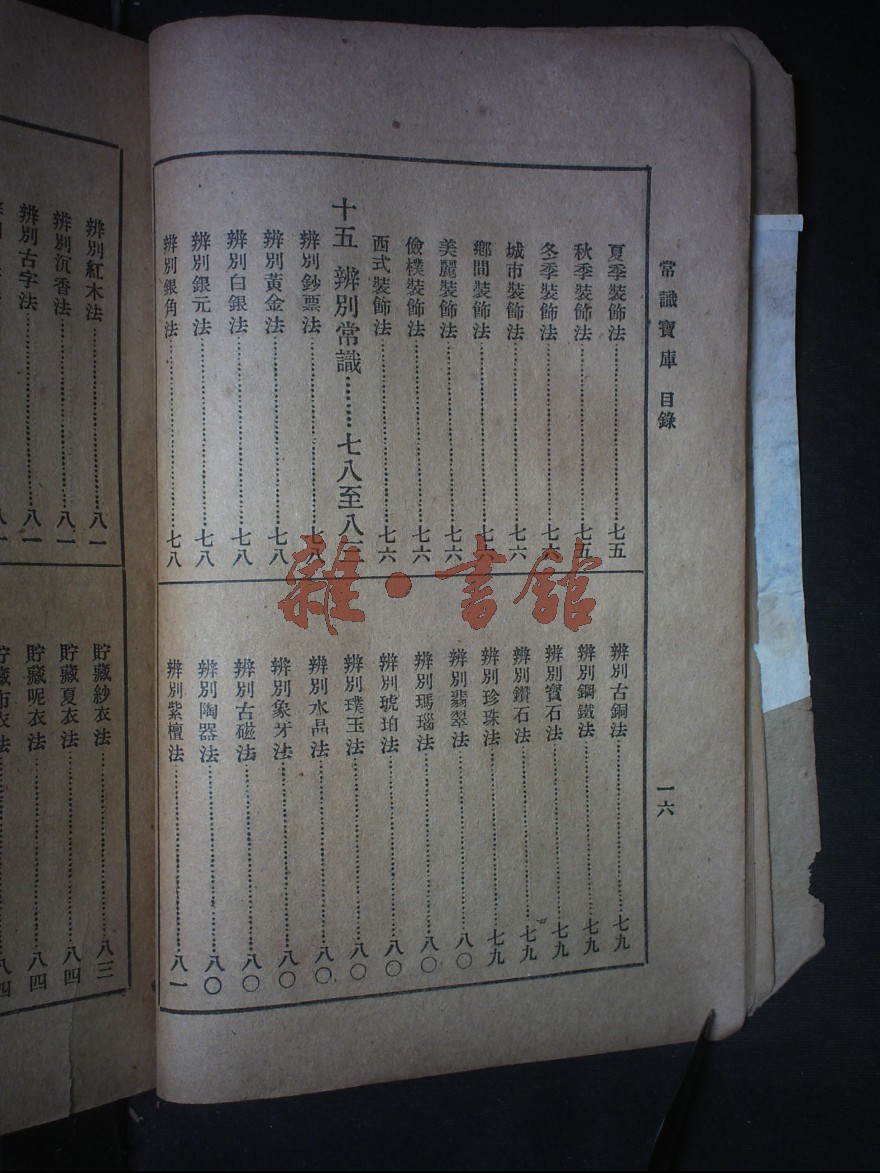 常識寶庫 目錄 一六
夏季裝飾法……七五
秋季裝飾法……七五
冬季裝飾法……七六
城市裝飾法……七六
鄉間裝飾法……七六
美麗裝飾法……七六
儉樸裝飾法……七六
西式裝飾法……七六
十五 辨別常識……七八至八
辨別鈔票法……七八
辨別黃金法……七八
辨別白銀法……七八
辨別銀元法……七八
辨別銀角法……七八
辨別古銅法……七九
辨別鋼鐵法……七九
辨別寶石法……七九
辨別鑽石法……七九
辨別珍珠法……七九
辨別翡翠法……八〇
辨別瑪瑙法……八〇
辨別琥珀法……八〇
辨別璞玉法……八〇
辨別水晶法……八〇
辨別象牙法……八〇
辨別古磁法……八〇
辨別陶器法……八〇
辨別紫檀法……八一
辨別紅木法……八一
辨別沉香法……八一
辨別古字法……八一
貯藏紗衣法……八三
貯藏夏衣法……八四
貯藏呢衣法……八四
貯藏布衣法……八四
雜·書館